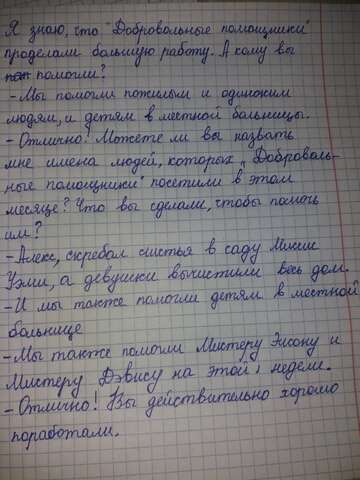 Я знаю, что "Добровольные помощники"
проделали большую работу. А кому вы
помогли?
- Мы помогли пожилым и одиноким
людям, и детям в местной больницы.
- Отлично! Можете ли вы назвать
мне имена людей, которых "Доброволь-
ные помощники" посетили в этом
месяце? Что вы сделали, чтобы помочь
им?
- Алекс, скребал листья в саду Миссис
Уэми, а девушки вычистили весь дом.
- И мы также помогли детям в местной
больнице
- Мы также помогли Мистеру Элсону и
Мистеру Дэвису на этой недели.
- Отлично! Вы действительно хорошо
поработали.